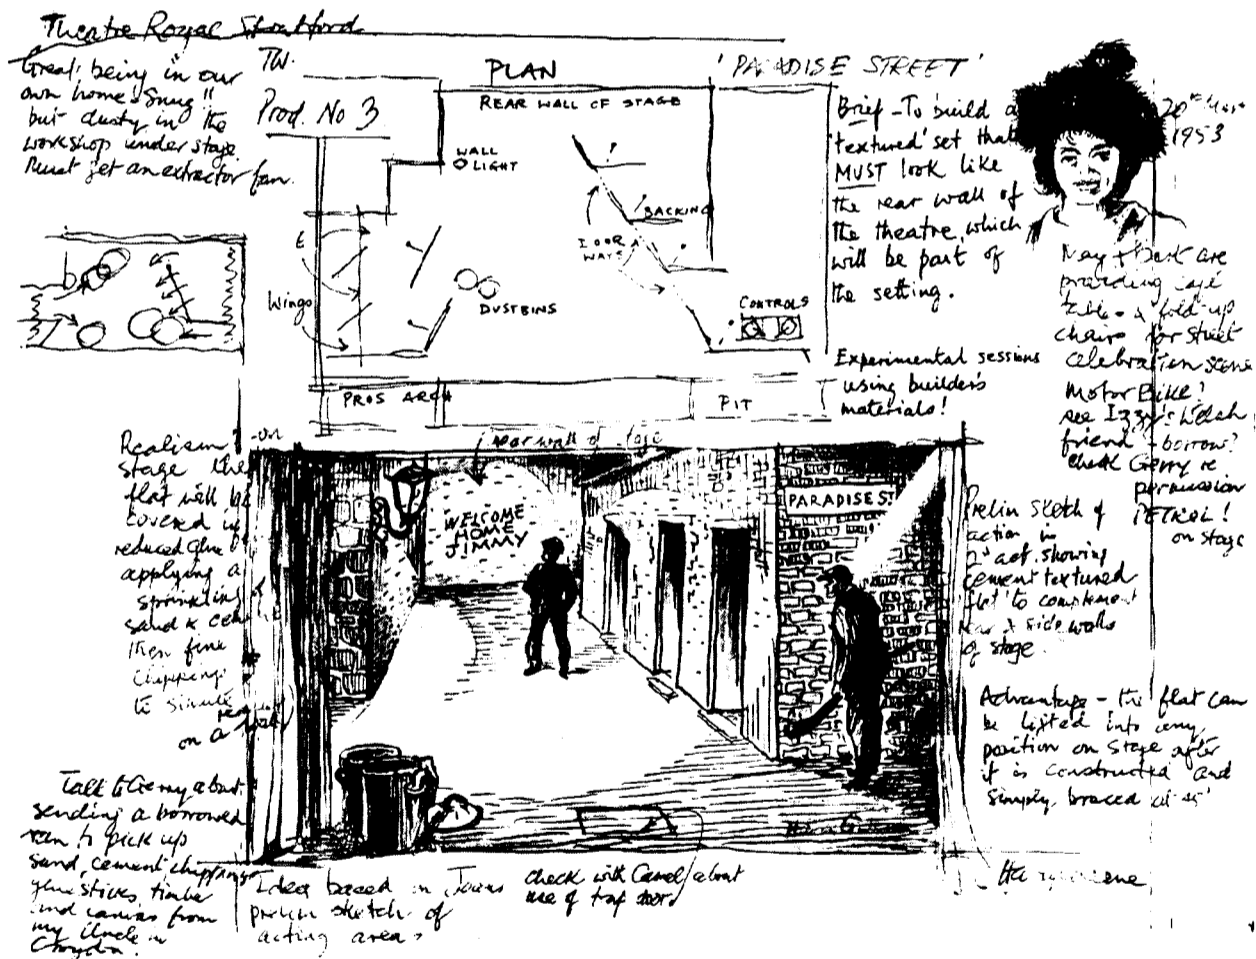 Theatre Royal Stratford
Great, being in our
own home "Snug"
but dusty in the
workshop under stage.
Must get an extractor fan.
TW.
Prod. No 3
PLAN
'PARADISE STREET'
REAR WALL OF STAGE
WALL
LIGHT
BACKING
DOOR
WAYS
DUSTBINS
CONTROLS
Wings
PROS ARCH
PIT
Brief - To build a
'textured' set that
MUST look like
the rear wall of
the theatre, which
will be part of
the setting.
Experimental sessions
using builders
materials!
20th
1953
are
providing café
tables & fold-up
chairs for street
celebration scene
Motor Bike?
see Izzy's Welsh
friend - borrow?
check Gerry re
permission
PETROL!
on stage
Realism - on
stage the
flat will be
covered
reduced glue
applying a
sprinkling
sand &
then fine
chippings
to
on a
rear wall of stage
WELCOME
HOME
JIMMY
PARADISE ST
Prelim sketch of
action in
2nd act, showing
cement textured
flat to complement
rear & side walls
of stage.
Advantage - the flat can
be lifted into any
position on stage after
it is constructed and
simply braced
Talk to Gerry about
sending a borrowed
van to pick up
sand, cement, chippings
glue, timber
and canvas from
my Uncle in
Croydon.
Idea based on
prelim sketch of
acting area.
check with Camel about
use of trap door.